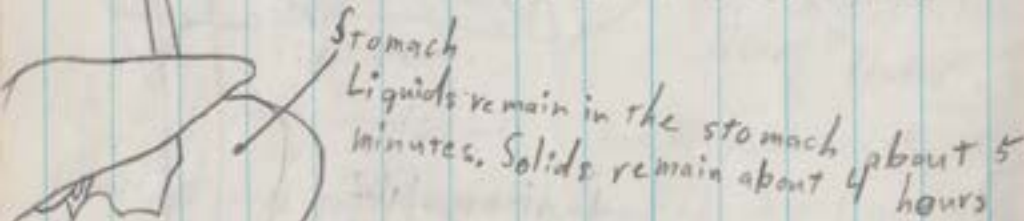 Stomach
Liquids remain in the stomach about 5
minutes. Solids remain about 4
hours